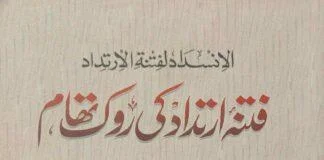 الإنسداد لفتنة الإرتداد
فتنۂ ارتداد کی روک تھام